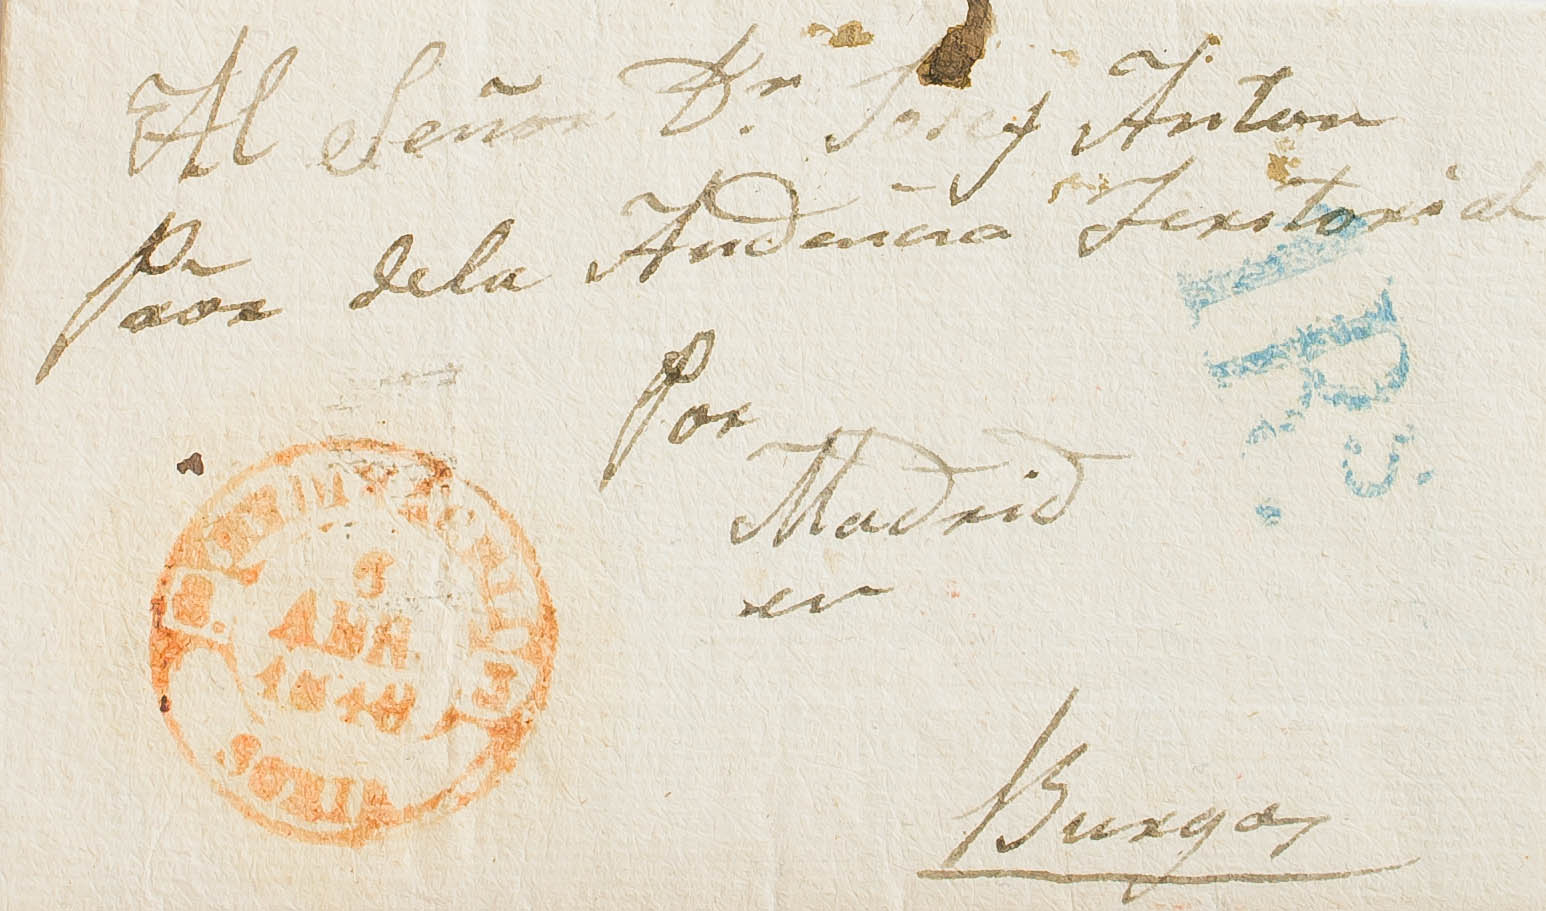 Al Señor Dr. Josef Anton
Pror dela Audencia Territorial
Por
Madrid
en
Burgos
3
ABR
1848
SORIA